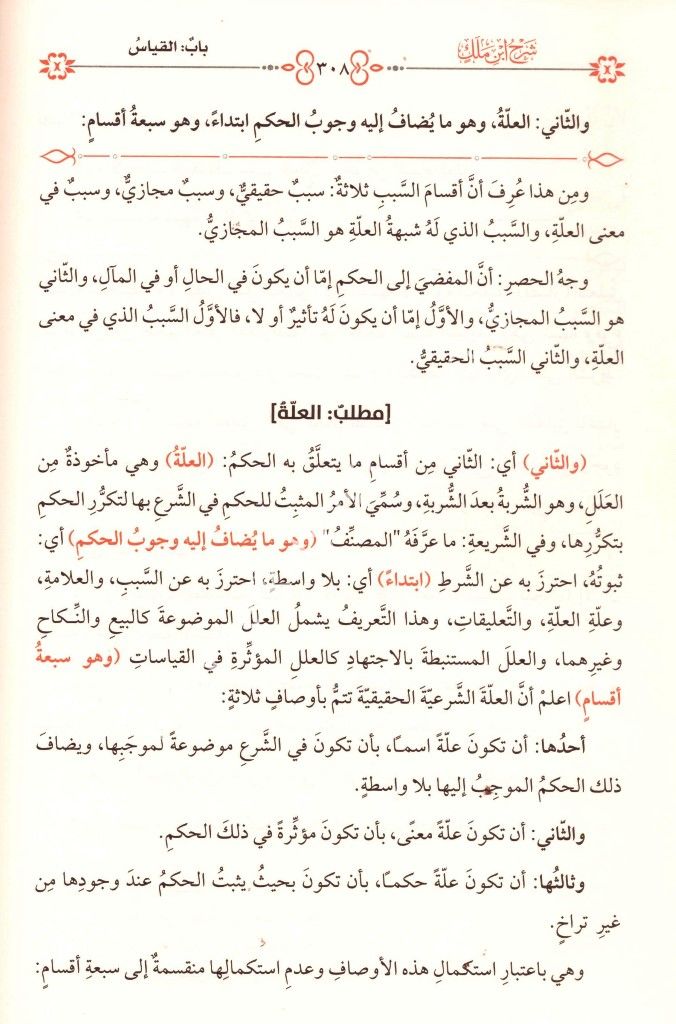 شَرْحُ ابْنِ مَلَكٍ
٣٠٨
بابٌ: القياسُ
والثّاني: العلّةُ، وهو ما يُضافُ إليه وجوبُ الحكمِ ابتداءً، وهو سبعةُ أقسامٍ:
ومِن هذا عُرِفَ أنَّ أقسامَ السَّببِ ثلاثةٌ: سببٌ حقيقيٌّ، وسببٌ مجازيٌّ، وسببٌ في
معنى العلّةِ، والسَّببُ الذي لَهُ شبهةُ العلّةِ هو السَّببُ المجازيُّ.
وجهُ الحصرِ: أنَّ المفضيَ إلى الحكمِ إمّا أن يكونَ في الحالِ أو في المآلِ، والثّاني
هو السَّببُ المجازيُّ، والأوَّلُ إمّا أن يكونَ لَهُ تأثيرٌ أو لا، فالأوَّلُ السَّببُ الذي في معنى
العلّةِ، والثّاني السَّببُ الحقيقيُّ.
[مطلبٌ: العلّةُ]
(والثّاني) أي: الثّاني مِن أقسامِ ما يتعلَّقُ به الحكمُ: (العلّةُ) وهي مأخوذةٌ مِن
العَلَلِ، وهو الشُّربةُ بعدَ الشُّربةِ، وسُمِّيَ الأمرُ المثبِتُ للحكمِ في الشَّرعِ بها لتكرُّرِ الحكمِ
بتكرُّرِها، وفي الشَّريعةِ: ما عرَّفَهُ "المصنِّفُ" (وهو ما يُضافُ إليه وجوبُ الحكمِ) أي:
ثبوتُهُ، احترزَ به عن الشَّرطِ (ابتداءً) أي: بلا واسطةٍ، احترزَ به عن السَّببِ، والعلامةِ،
وعلّةِ العلّةِ، والتَّعليقاتِ، وهذا التَّعريفُ يشملُ العللَ الموضوعةَ كالبيعِ والنِّكاحِ
وغيرِهما، والعللَ المستنبطةَ بالاجتهادِ كالعللِ المؤثِّرةِ في القياساتِ (وهو سبعةُ
أقسامٍ) اعلمْ أنَّ العلّةَ الشَّرعيّةَ الحقيقيّةَ تتمُّ بأوصافٍ ثلاثةٍ:
أحدُها: أن تكونَ علّةً اسماً، بأن تكونَ في الشَّرعِ موضوعةً لموجَبِها، ويضافَ
ذلك الحكمُ الموجِبُ إليها بلا واسطةٍ.
والثّاني: أن تكونَ علّةً معنًى، بأن تكونَ مؤثِّرةً في ذلكَ الحكمِ.
وثالثُها: أن تكونَ علّةً حكماً، بأن تكونَ بحيثُ يثبتُ الحكمُ عندَ وجودِها مِن
غيرِ تراخٍ.
وهي باعتبارِ استكمالِ هذه الأوصافِ وعدمِ استكمالِها منقسمةٌ إلى سبعةِ أقسامٍ: